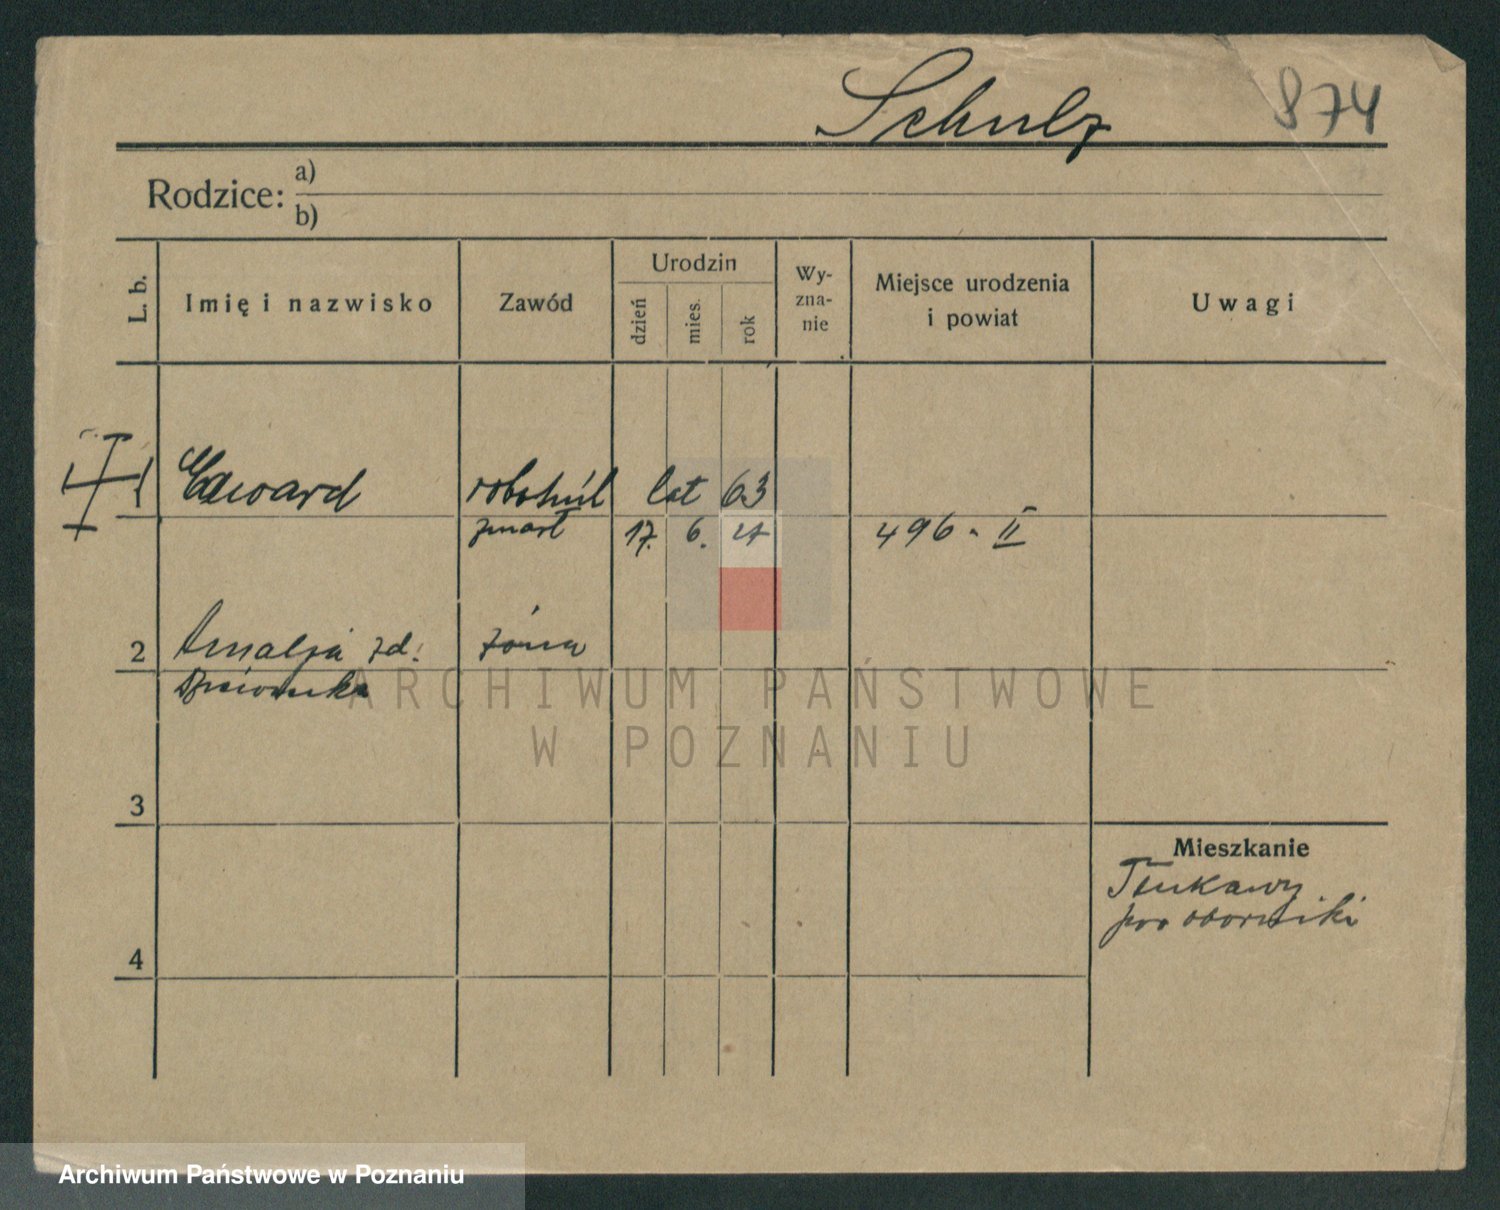 Schulz 874
Rodzice: a)
b)
L. b. Imię i nazwisko Zawód Urodzin dzień mies. rok Wy-zna-nie Miejsce urodzenia i powiat Uwagi
1 Edward robotnik lat 63
zmarł 17. 6. 496 - II
2 Amalja zd. żona
3
Mieszkanie
pow oborniki
4
ARCHIWUM PAŃSTWOWE
W POZNANIU
Archiwum Państwowe w Poznaniu